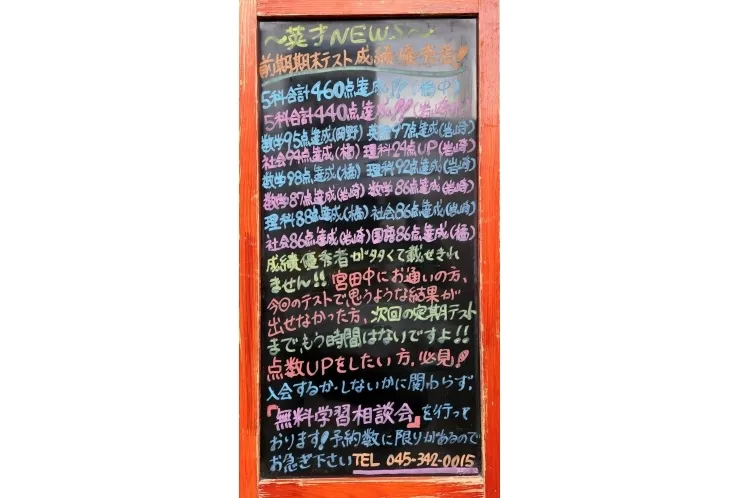 ～英才NEWS～
前期期末テスト成績優秀者!
5科合計460点達成!!(橘中)
5科合計440点達成!!(岩崎)
数学95点達成(岡野) 英語97点達成(岩崎)
社会94点達成(橘) 理科24点UP(岩崎)
数学98点達成(橘) 理科92点達成(岩崎)
数学87点達成(岩崎) 数学86点達成(岩崎)
理科88点達成(橘) 社会86点達成(岩崎)
社会86点達成(岩崎) 国語86点達成(橘)
成績優秀者が多くて載せきれ
ません!! 宮田中にお通いの方、
今回のテストで思うような結果が
出せなかった方、次回の定期テスト
まで、もう時間はないですよ!!
点数UPをしたい方、必見!
入会するか・しないかに関わらず、
『無料学習相談会』を行って
おります!予約数に限りがあるので
お急ぎ下さい TEL 045-342-0015